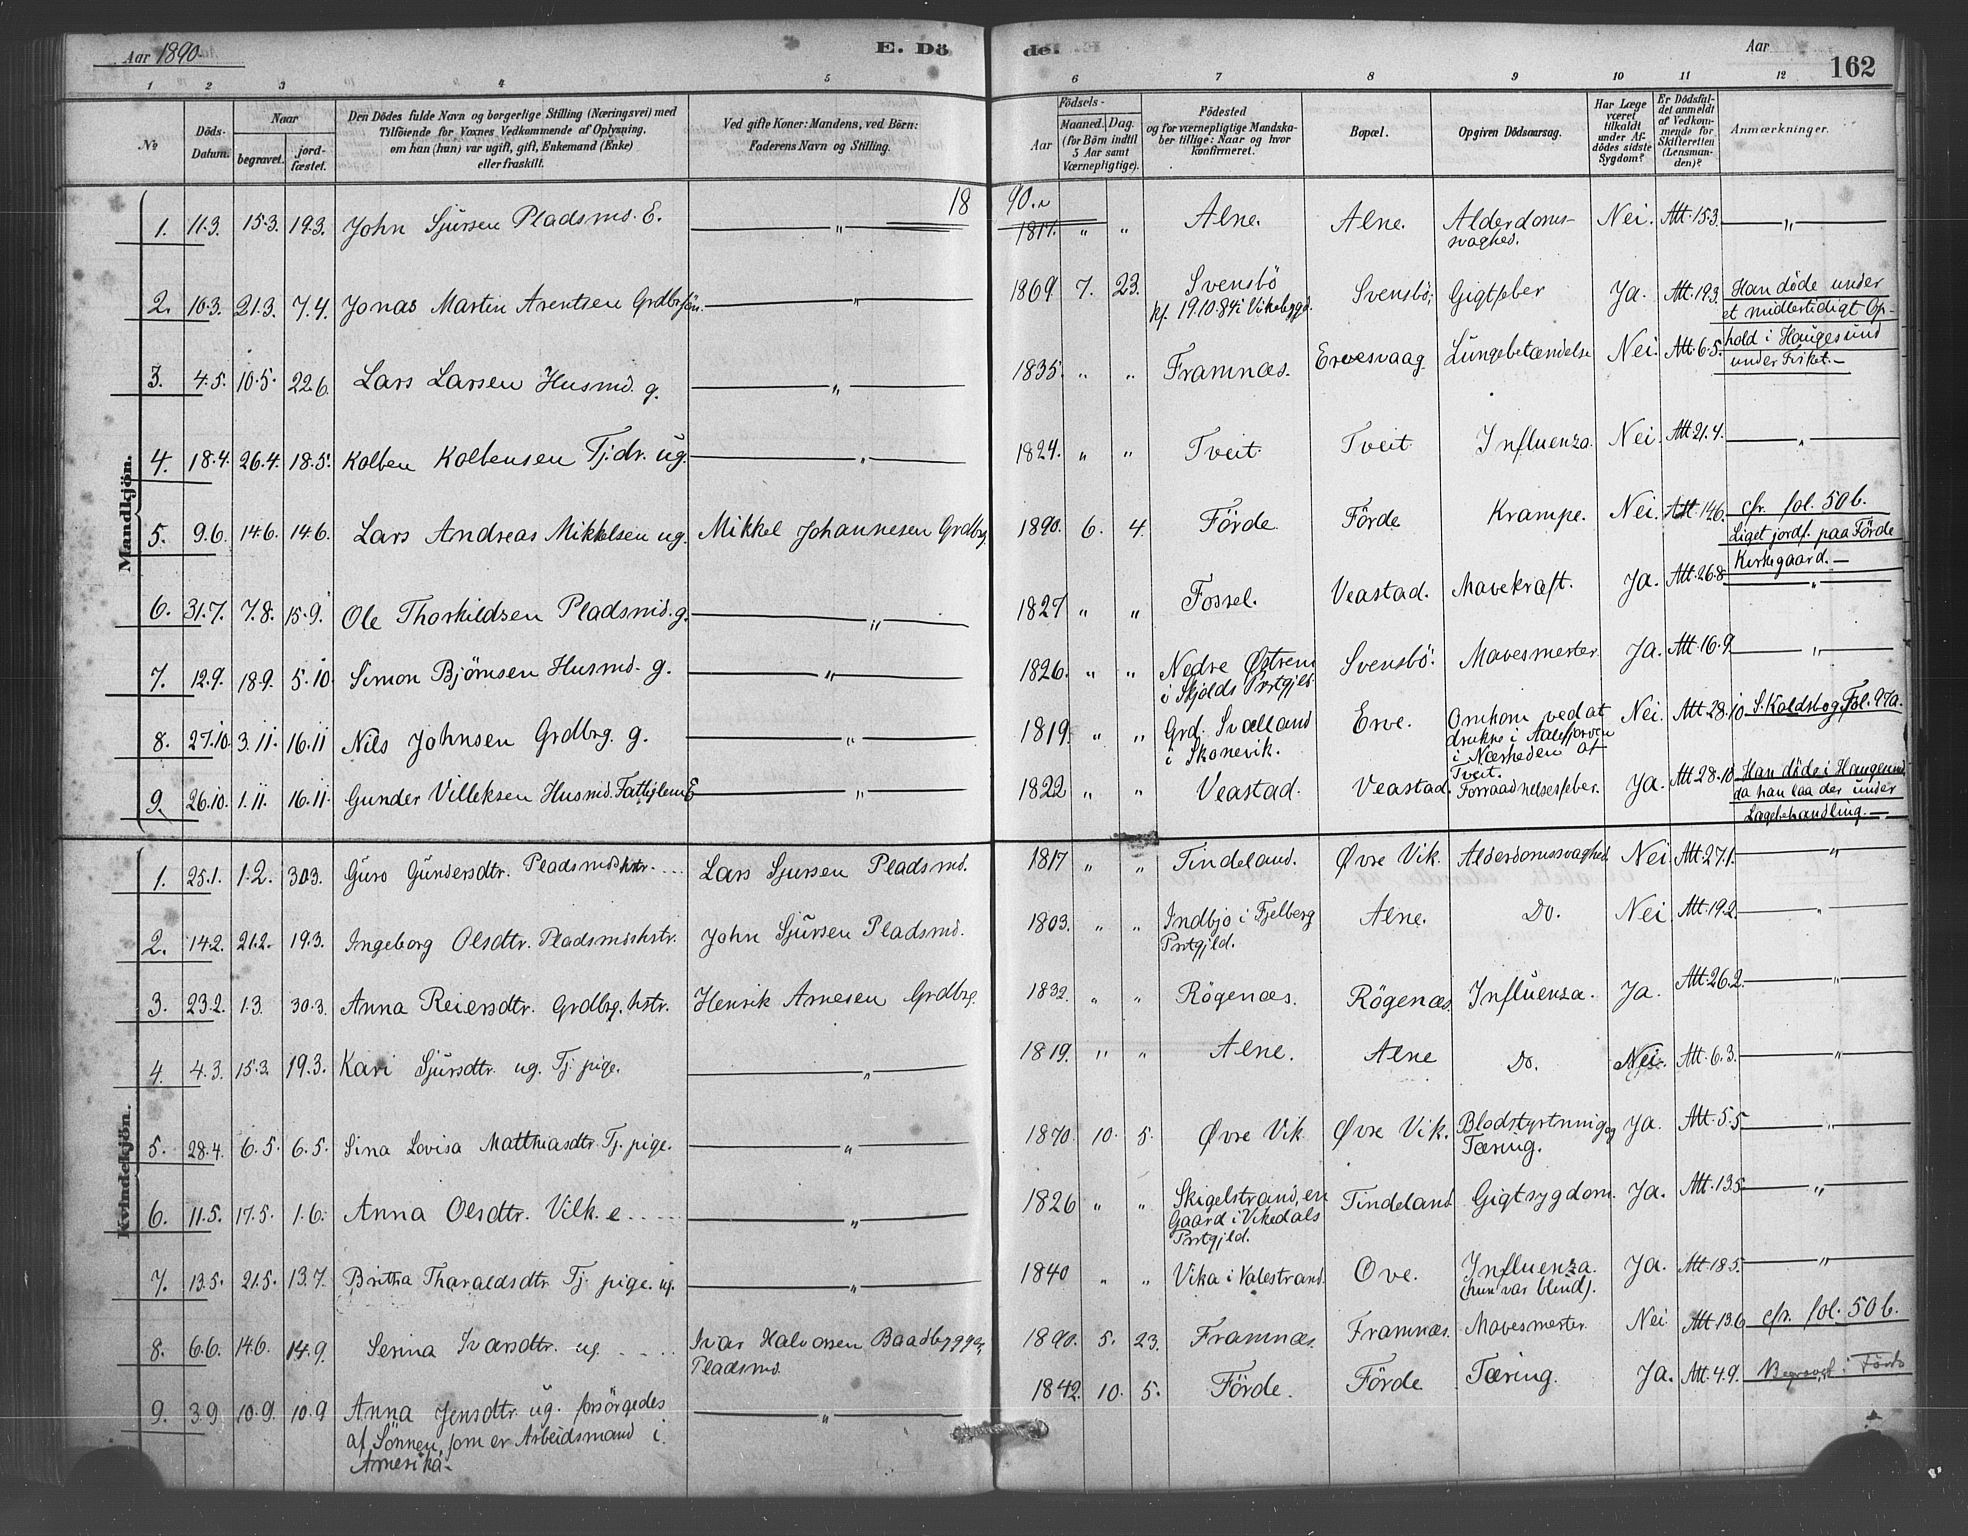 Aar 1890. E. Dö de. Aar 162
1 2 3 4 5 6 7 8 9 10 11 12
No
Döds-Datum.
Naar
begravet. jordfæstet.
Den Dödes fulde Navn og borgerlige Stilling (Næringsvei) med
Tilföiende for Voxnes Vedkommende af Oplysning,
om han (hun) var ugift, gift, Enkemand (Enke)
eller fraskilt.
Ved gifte Koner: Mandens, ved Börn:
Faderens Navn og Stilling.
Födsels-
Aar
Maaned. Dag.
(for Börn indtil
5 Aar samt
Værnepligtige).
Födested
og for værnepligtige Mandskaber tillige: Naar og hvor
konfirmeret.
Bopæl.
Opgiven Dödsaarsag.
Har Læge
været
tilkaldt
under Afdödes sidste
Sygdom?
Er Dödsfaldet anmeldt
af Vedkommende for
Skifteretten
(Lensmanden)?
Anmærkninger.
Mandkjön.
1890.
1. 11.3. 15.3. 19.3. John Sjursen Pladsmd. E. — " — 1817. " " Alne. Alne. Alderdomssvaghed. Nei. Att. 15.3. — " —
2. 10.3. 21.3. 7.4. Jonas Martin Arentsen Grdbrsön. — " — 1869. 7. 23. Svensbö kf. 19.10.84 i Vikebygd. Svensbö. Gigtfeber Ja. Att. 19.3. Han döde under et midlertidigt Ophold i Haugesund under Fisket. —
3. 4.5. 10.5. 22.6. Lars Larsen Husmd. g. — " — 1835. " " Framnæs. Ervesvaag. Lungebetændelse Nei. Att. 6.5.
4. 18.4. 26.4. 18.5. Kolben Kolbensen Tj.dr. ug. — " — 1824. " " Tveit. Tveit Influenza. Nei. Att. 21.4. — " —
5. 9.6. 14.6. 14.6. Lars Andreas Mikkelsen ug. Mikkel Johannesen Grdbrg. 1890. 6. 4. Förde Förde Krampe. Nei. Att. 14.6. cfr. fol. 50 b. Liget jordf. paa Förde Kirkegaard. —
6. 31.7. 7.8. 15.9. Ole Thorkildsen Pladsmd. g. — " — 1827 " " Fossel. Veastad. Mavekræft. Ja. Att. 26.8. — " —
7. 12.9. 18.9. 5.10. Simon Björnsen Husmd. g. — " — 1826. " " Nedre Østrem i Skjolds Prstgjld. Svensbö. Mavesmerter. Ja. Att. 16.9. — " —
8. 27.10. 3.11. 16.11 Nils Johnsen Grdbrg. g. — " — 1819. " " Grd. Svælland i Skonevik. Erve. Omkom ved at drukne i Aalefjorden i Nærheden af Tveit. Nei. Att. 28.10. S. Koldsbog, Fol. 97a.
9. 26.10. 1.11. 16.11. Gunder Villeksen Husmd. Fattiglem E — " — 1822 " " Veastad. Veastad. Forraadnelsesfeber. Ja. Att. 28.10. Han döde i Haugesund da han laa der under Lægebehandling. —
Kvindekjön.
1. 25.1. 1.2. 30.3. Guro Gundersdtr. Pladsmdshstr. Lars Sjursen Pladsmd. 1817 " " Tindeland. Øvre Vik. Alderdomssvaghed. Nei. Att. 27.1. — " —
2. 14.2. 21.2. 19.3. Ingeborg Olsdtr. Pladsmdshstr. John Sjursen Pladsmd. 1803. " " Indbjo i Fjelberg Prstgjld. Alne. Do. Nei. Att. 19.2. — " —
3. 23.2. 1.3. 30.3. Anna Reiersdtr. Grdbrg. hstr. Henrik Arnesen Grdbrg. 1832. " " Rögenæs. Rögenæs. Influenza. Ja. Att. 26.2. — " —
4. 4.3. 15.3. 19.3. Kari Sjursdtr. ug. Tj. pige. — " — 1819. " " Alne. Alne Do. Nei. Att. 6.3. — " —
5. 28.4. 6.5. 6.5. Sina Lovisa Matthiasdtr. Tj. pige. — " — 1870. 10. 5. Øvre Vik Øvre Vik. Blodstyrtning og Tæring. Ja. Att. 5.5. — " —
6. 11.5. 17.5. 1.6. Anna Olsdtr. Vilk. e. — " — 1826 " " Skigelstrand, en Gaard i Vikedals Prstgjld. Tindeland Gigtsygdom. Ja. Att. 13.5. — " —
7. 13.5. 21.5. 13.7. Britha Tharaldsdtr. Tj. pige. ug. — " — 1840 " " Vika i Valestrand. Ove. Influenza. (hun var blind). Ja. Att. 18.5. — " —
8. 6.6. 14.6. 14.9. Serina Ivarsdtr. ug. Ivar Halvorsen Baadbygger, Pladsmd. 1890. 5. 23. Framnæs. Framnæs. Mavesmerter Nei Att. 13.6. cfr. fol. 50 b.
9. 3.9. 10.9. 10.9 Anna Jensdtr. ug. forsörgedes af Sönnen, som er Arbeidsmand i Amerika. — " — 1842. 10. 5. Förde. Förde Tæring. Ja. Att. 4.9. Begravet i Förde